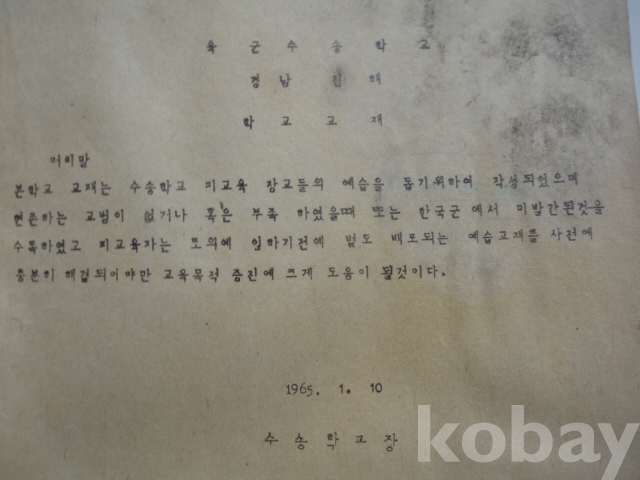 육군수송학교
경남 진해
학교교재
머리말
본학교 교재는 수송학교 피교육 장교들의 예습을 돕기위하여 작성되었으며
현존하는 교범이 없거나 혹은 부족 하였을때 또는 한국군에서 미발간된것을
수록하였고 피교육자는 토의에 임하기전에 별도 배포되는 예습교재를 사전에
충분히 해결되어야만 교육목적 증진에 크게 도움이 될것이다.
1965. 1. 10
수송학교장
kobay